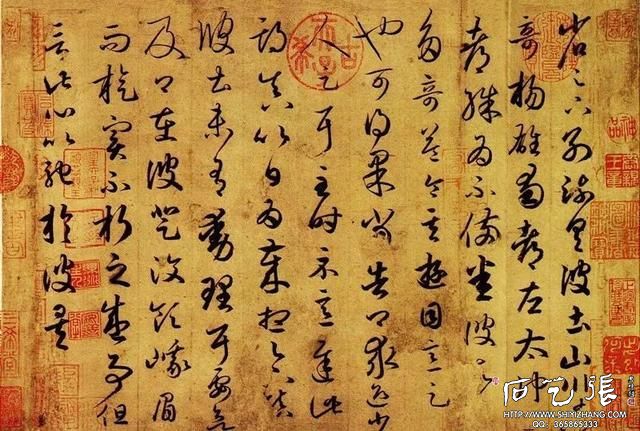 省足下別疏具彼土山川諸
奇揚雄蜀都左太沖三
都殊為不備悉彼故為
多奇益令其遊目意足
也可得果當告卿求迎少
人足耳至時示意遲此
期真以日為歲想足下鎮
彼土未有動理耳要欲
及卿在彼登汶領峨眉
而旋實不朽之盛事但
言此心以馳於彼矣
HTTP://WWW.SHIYIZHANG.COM
QQ: 365865333